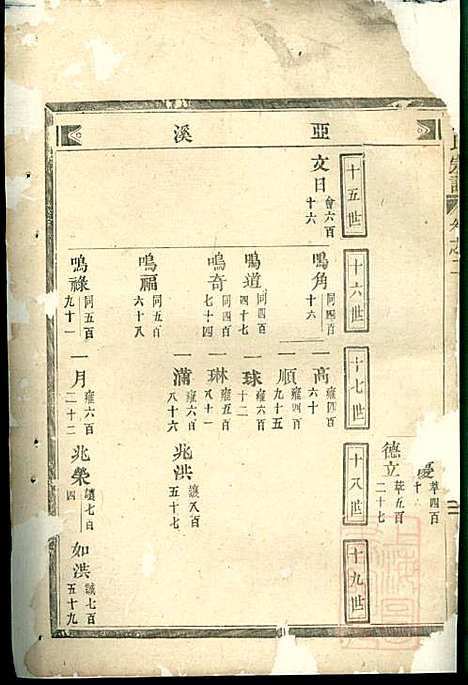 氏宗譜 卷之二
亞溪
慶 萃四百十
德立 萃五百二十七
十五世
十六世
十七世
十八世
十九世
文日 會六百十六
鳴角 同四百十六
鳴道 同四百四十七
鳴奇 同四百七十四
鳴福 同五百六十八
鳴祿 同五百九十一
一高 雍四百六十
一順 雍四百九十五
一球 雍六百十二
一琳 雍五百八十一
一滿 雍六百八十六
一月 雍六百二十二
兆洪 謨八百五十七
兆榮 謨七百四
如洪 誠七百五十九